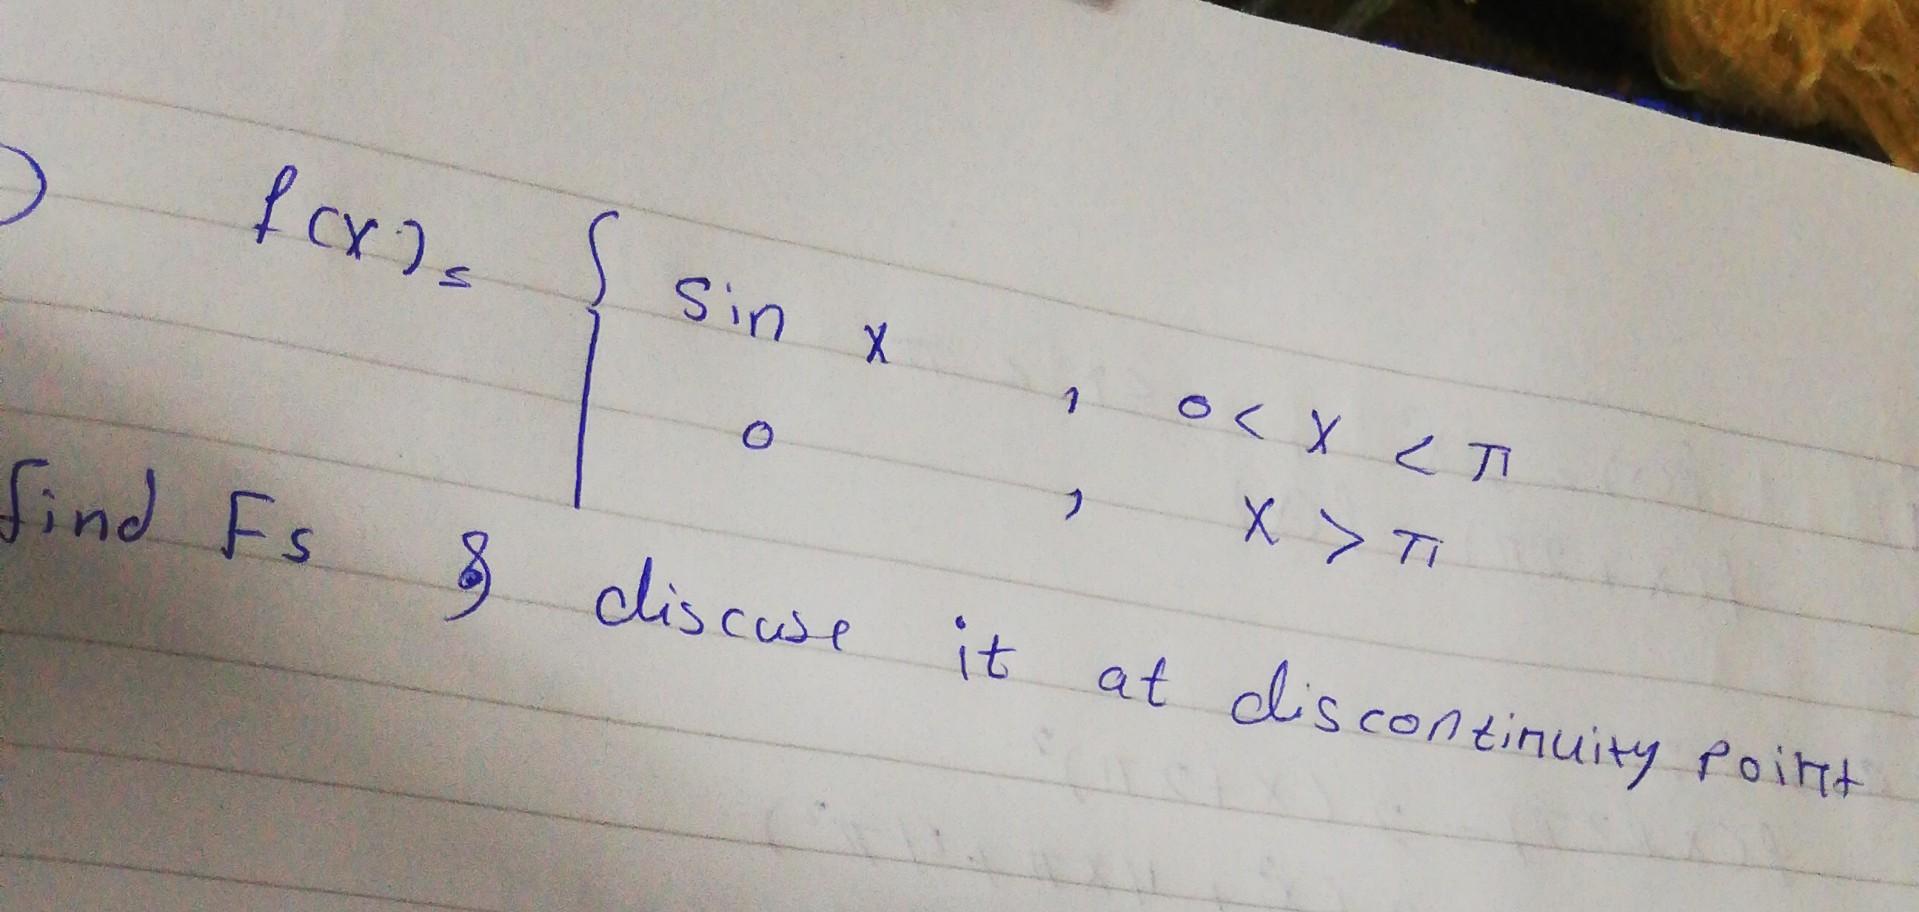 f(x) = { sin x , 0 < x < π
0 , x > π
find Fs & discuse it at discontinuity point